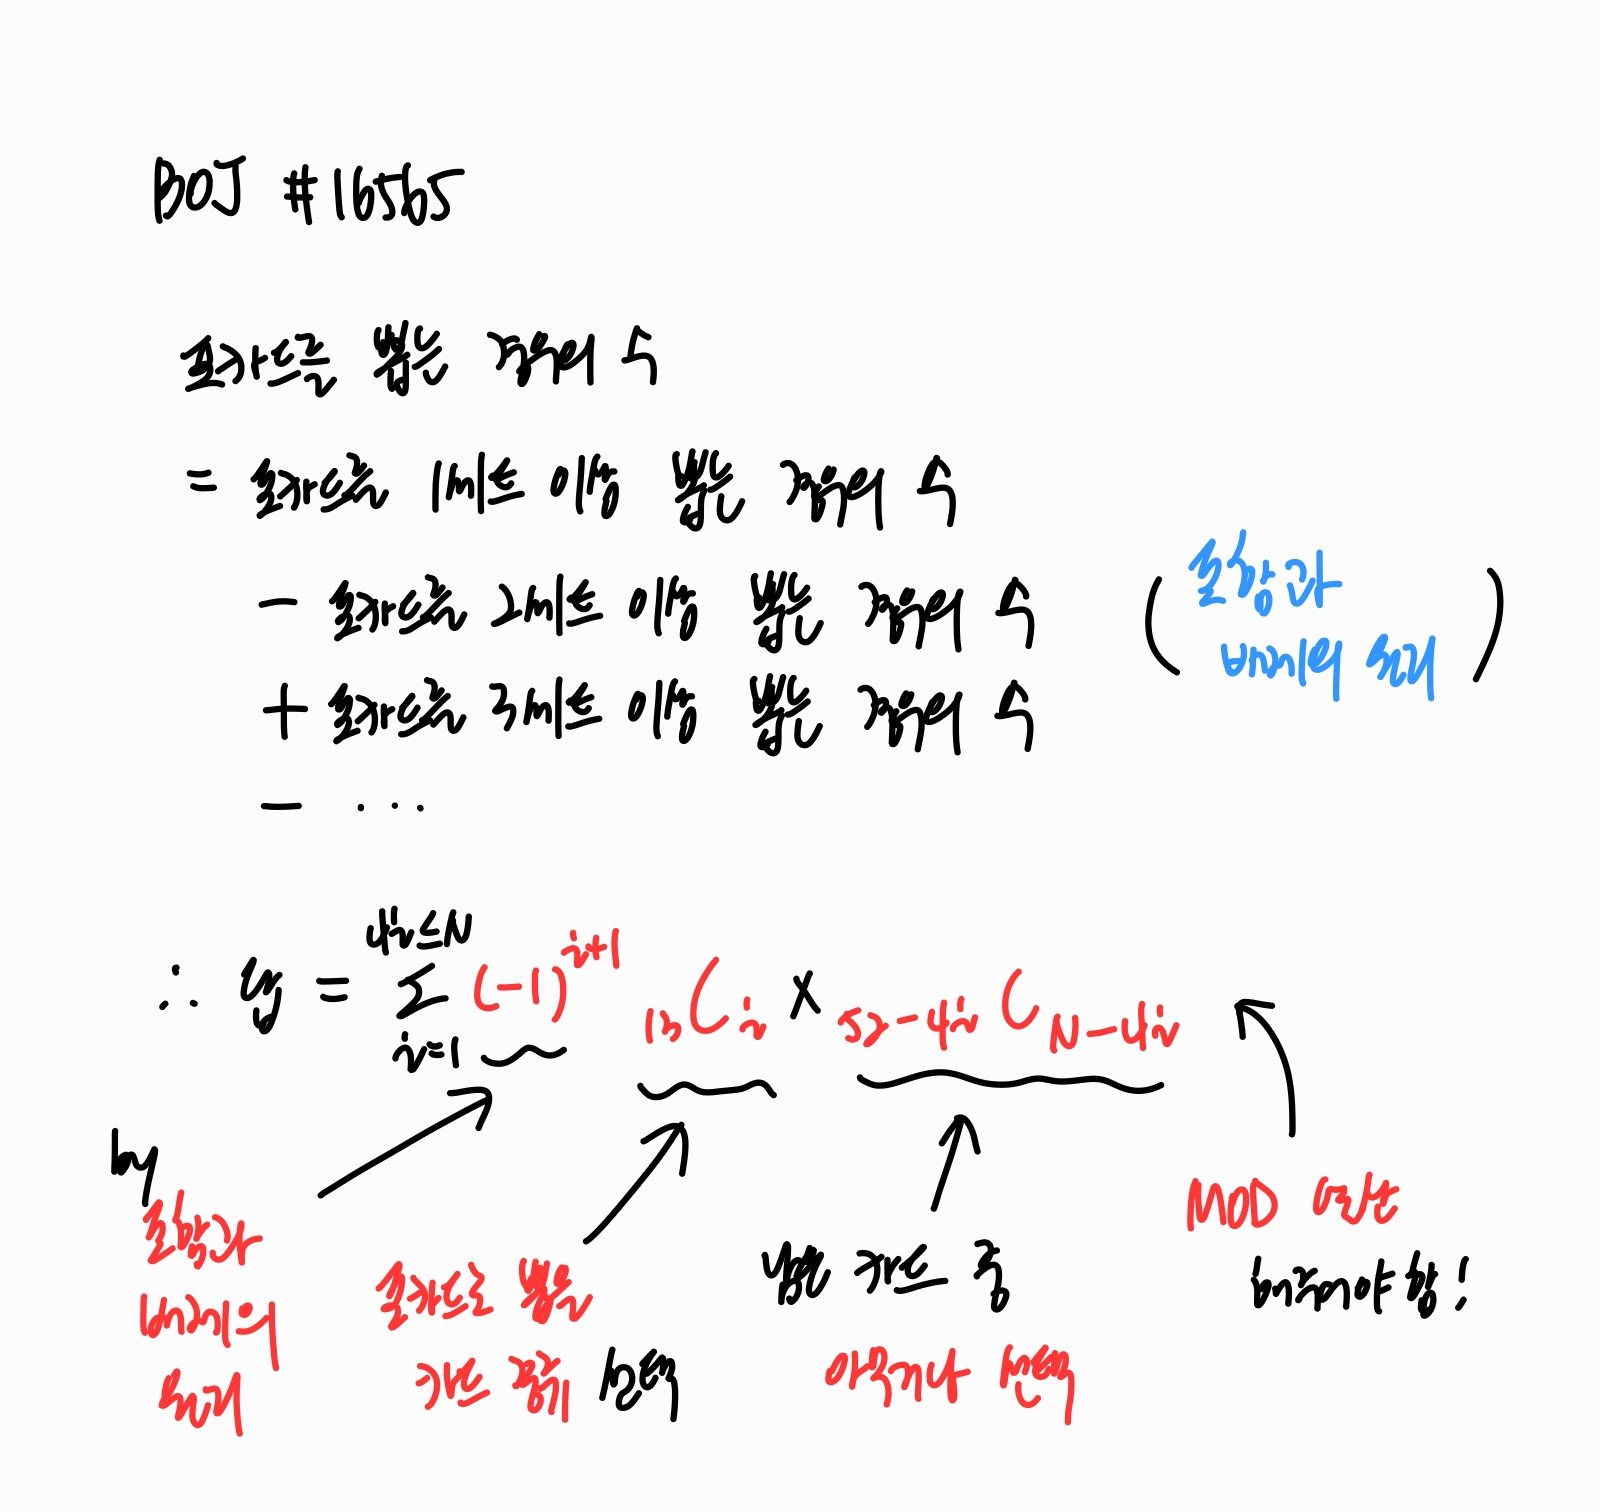 BOJ #16565
포카드를 뽑는 경우의 수
= 포카드를 1세트 이상 뽑는 경우의 수
- 포카드를 2세트 이상 뽑는 경우의 수
(포함과
배제의 원리)
+ 포카드를 3세트 이상 뽑는 경우의 수
- ...
∴ 답 = 4i≤N Σ i=1 (-1)^{i+1} ₁₃C_i × _{52-4i}C_{N-4i}
by
포함과
배제의
원리
포카드로 뽑을
카드 종류 선택
남은 카드 중
아무거나 선택
MOD 연산
해주어야 함!